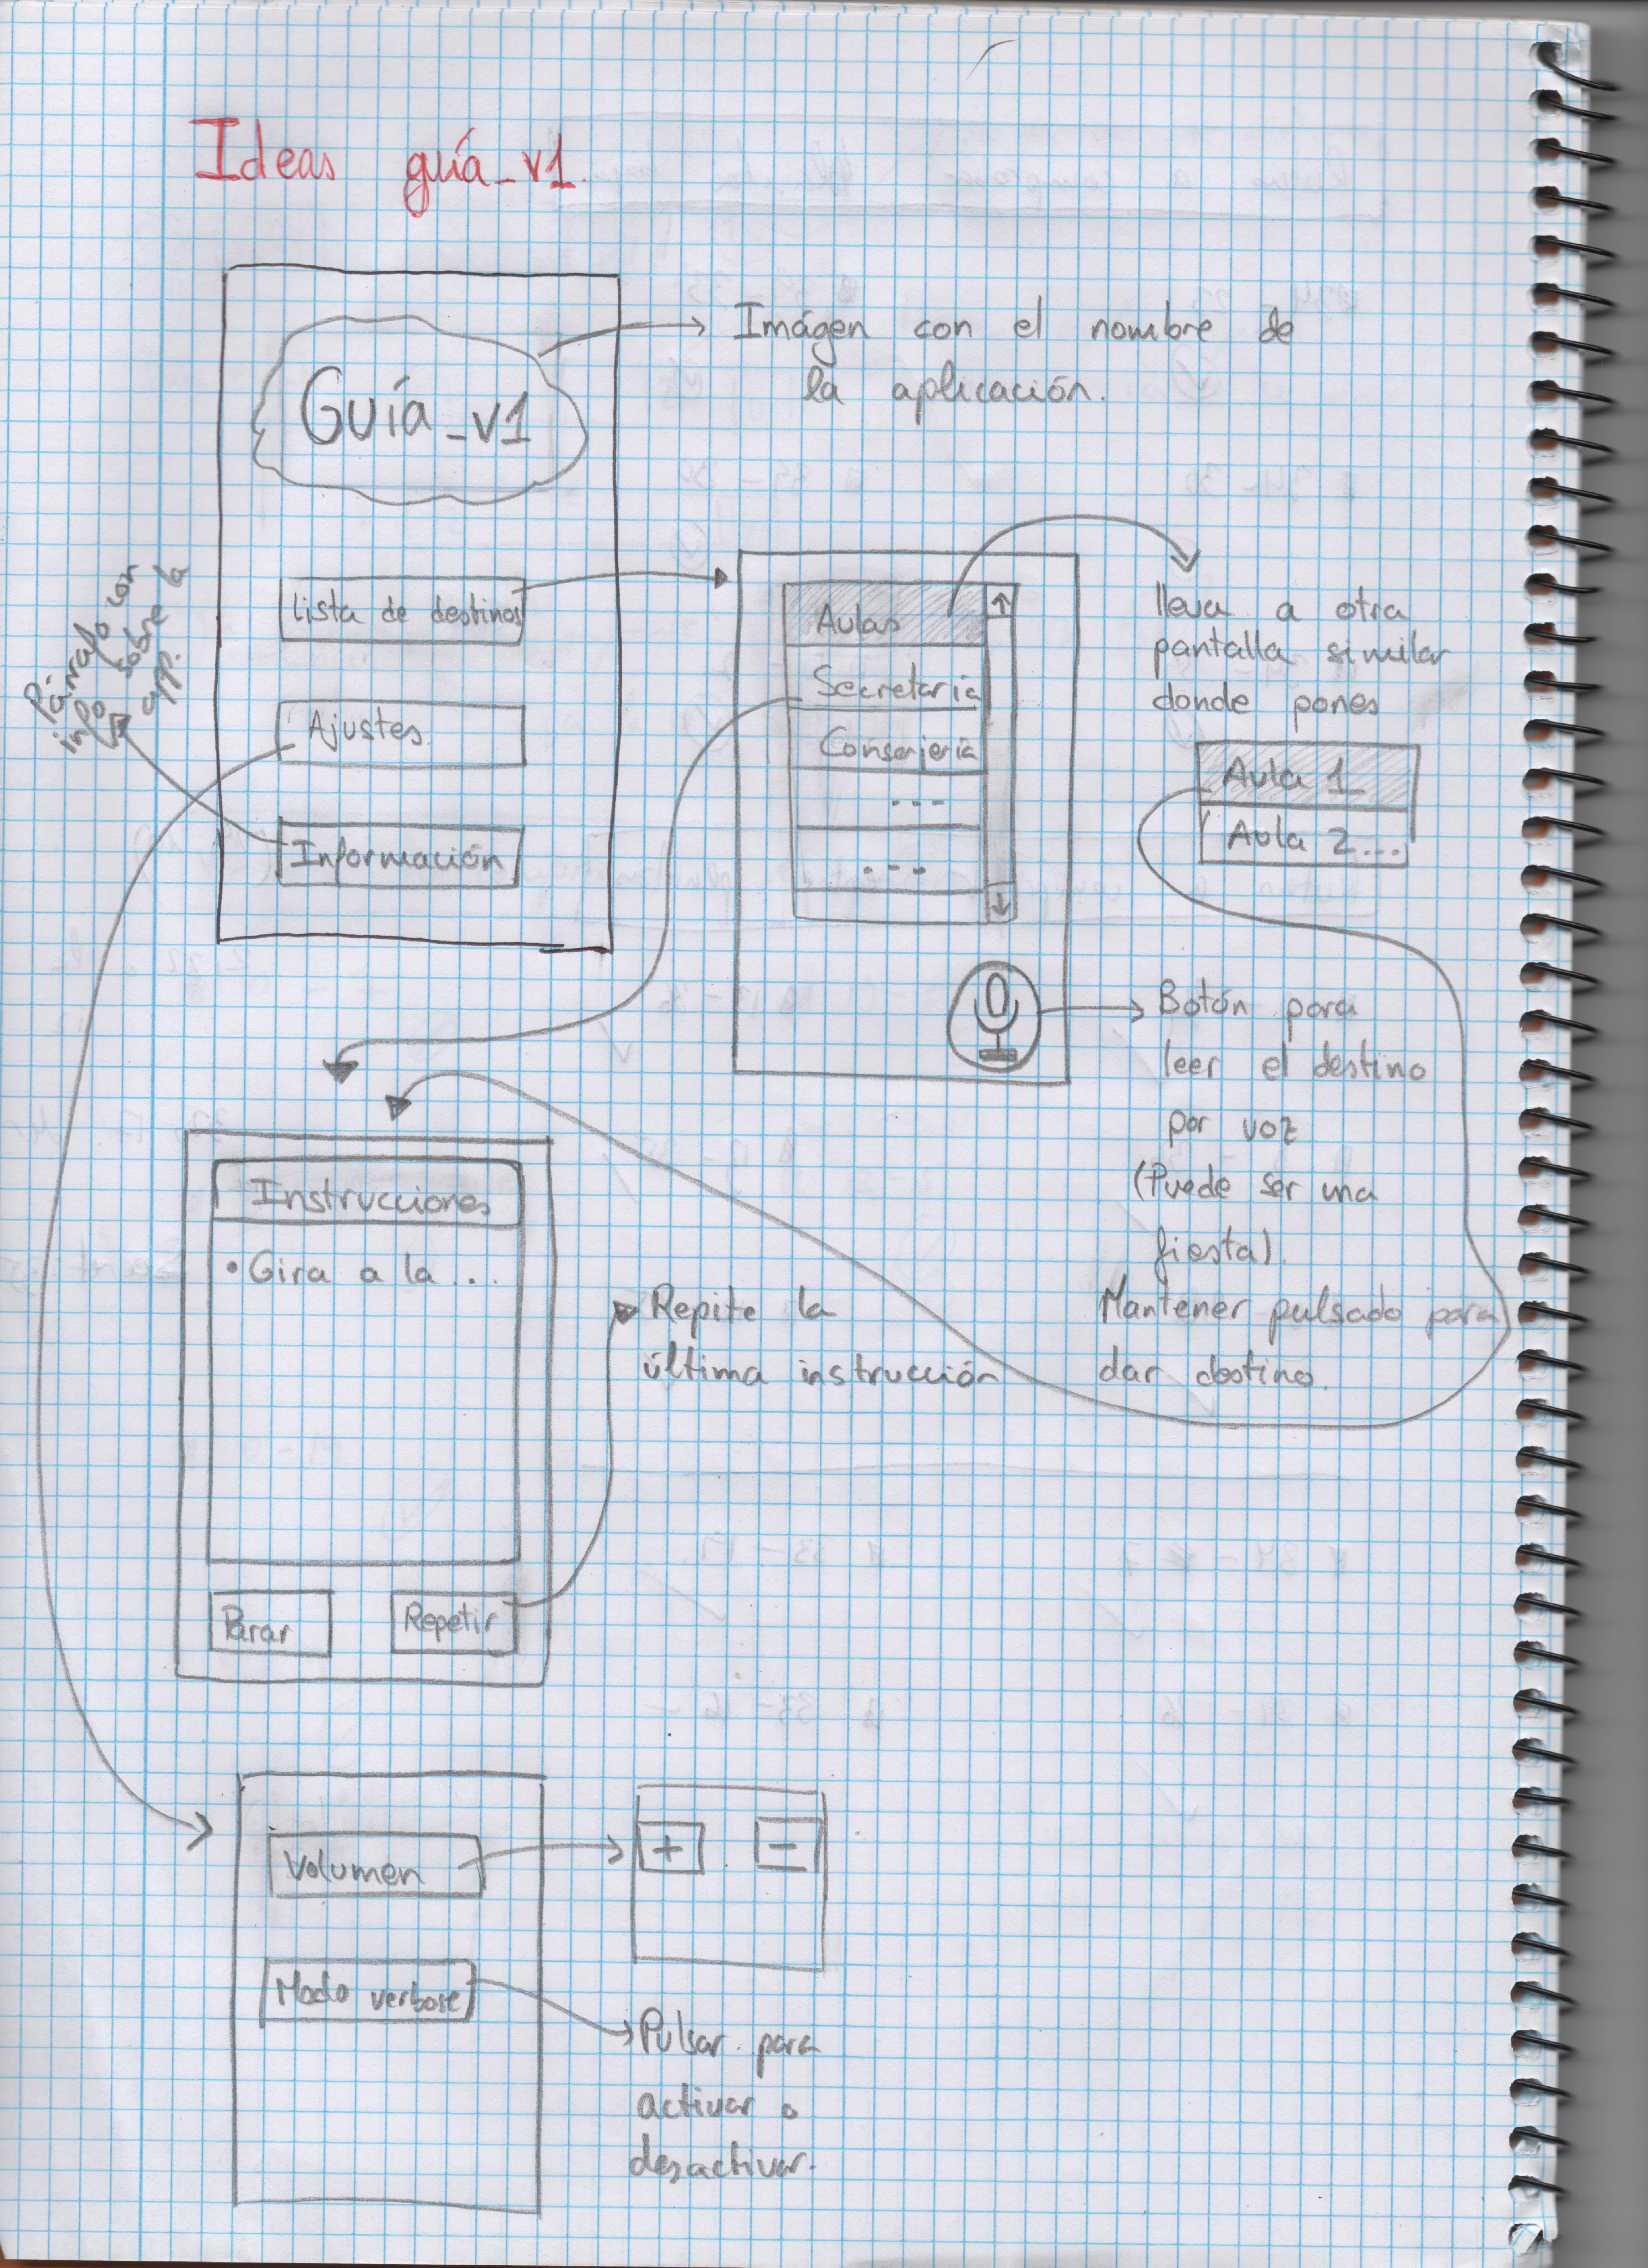 Ideas guía_v1.
Guía_v1
Imágen con el nombre de
la aplicación.
lista de destinos
Ajustes
Información
Párrafo con
info sobre la
app.
Aulas
Secretaría
Conserjería
...
...
lleva a otra
pantalla similar
donde pones
Aula 1
Aula 2...
Botón para
leer el destino
por voz
(Puede ser una
fiesta).
Mantener pulsado para
dar destino.
Instrucciones
• Gira a la ...
Parar
Repetir
Repite la
última instrucción
Volumen
+ -
Modo verbose
Pulsar para
activar o
desactivar.